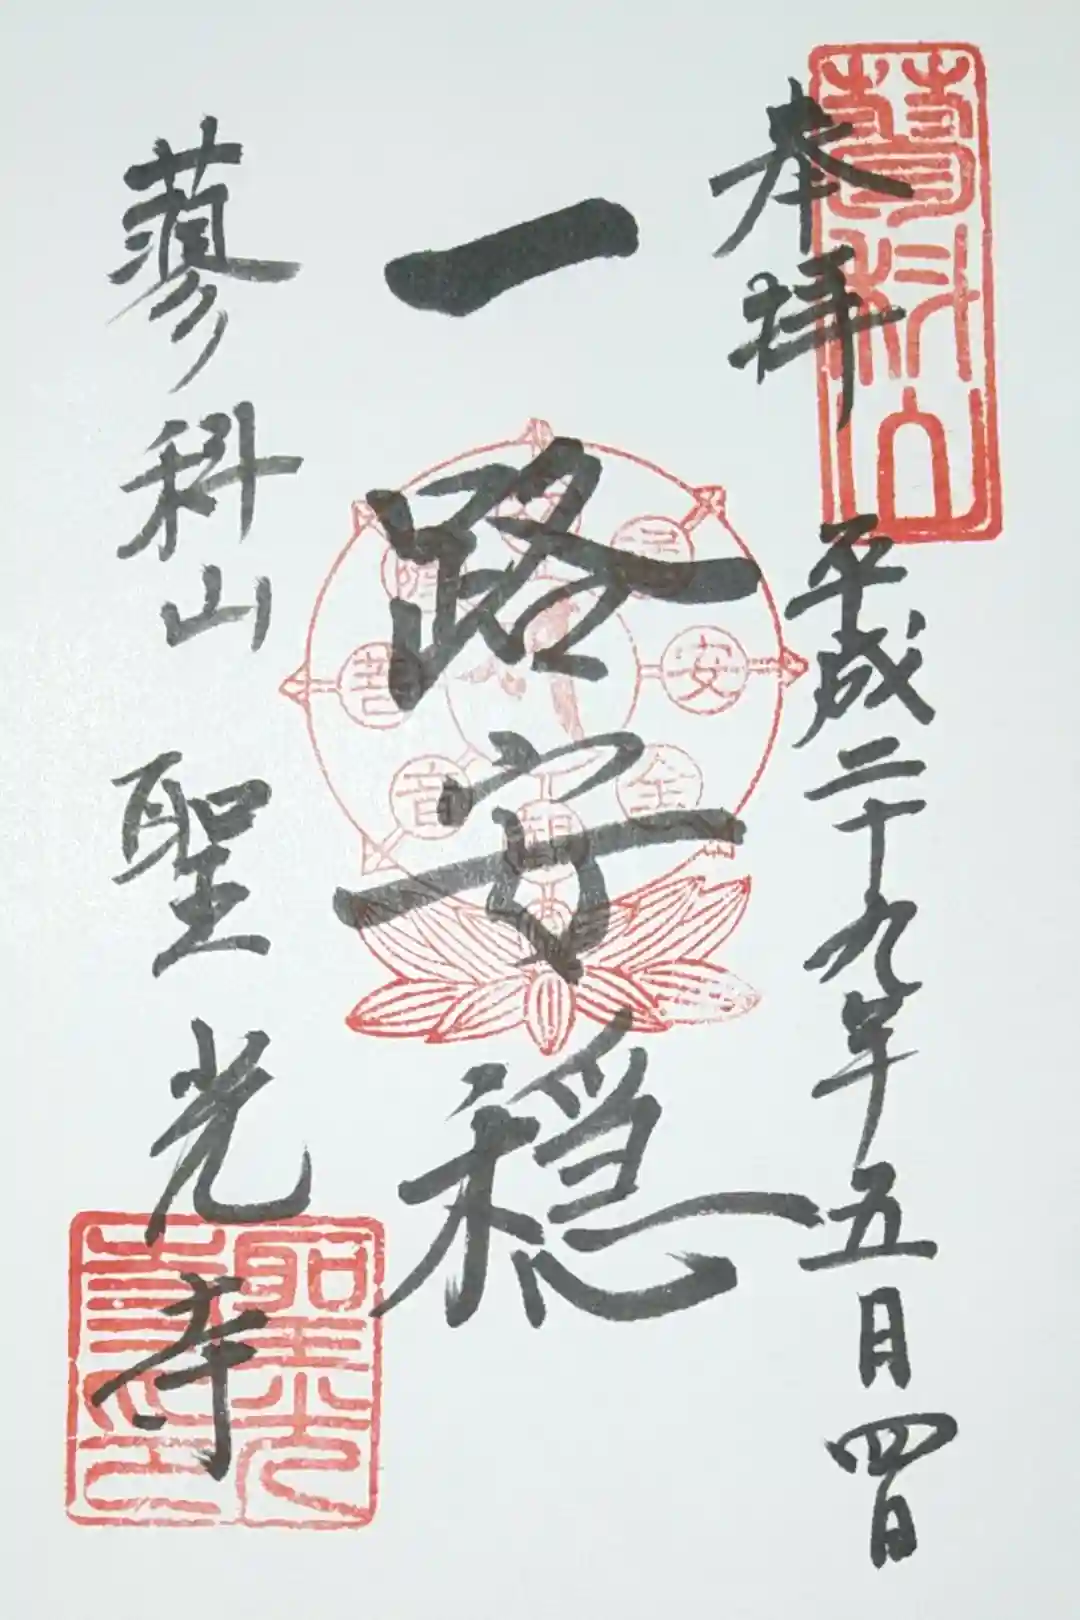 奉拝
平成二十九年五月四日
一路安穏
蓼科山 聖光寺
蓼科山
聖光寺印
安
全
観
音
菩